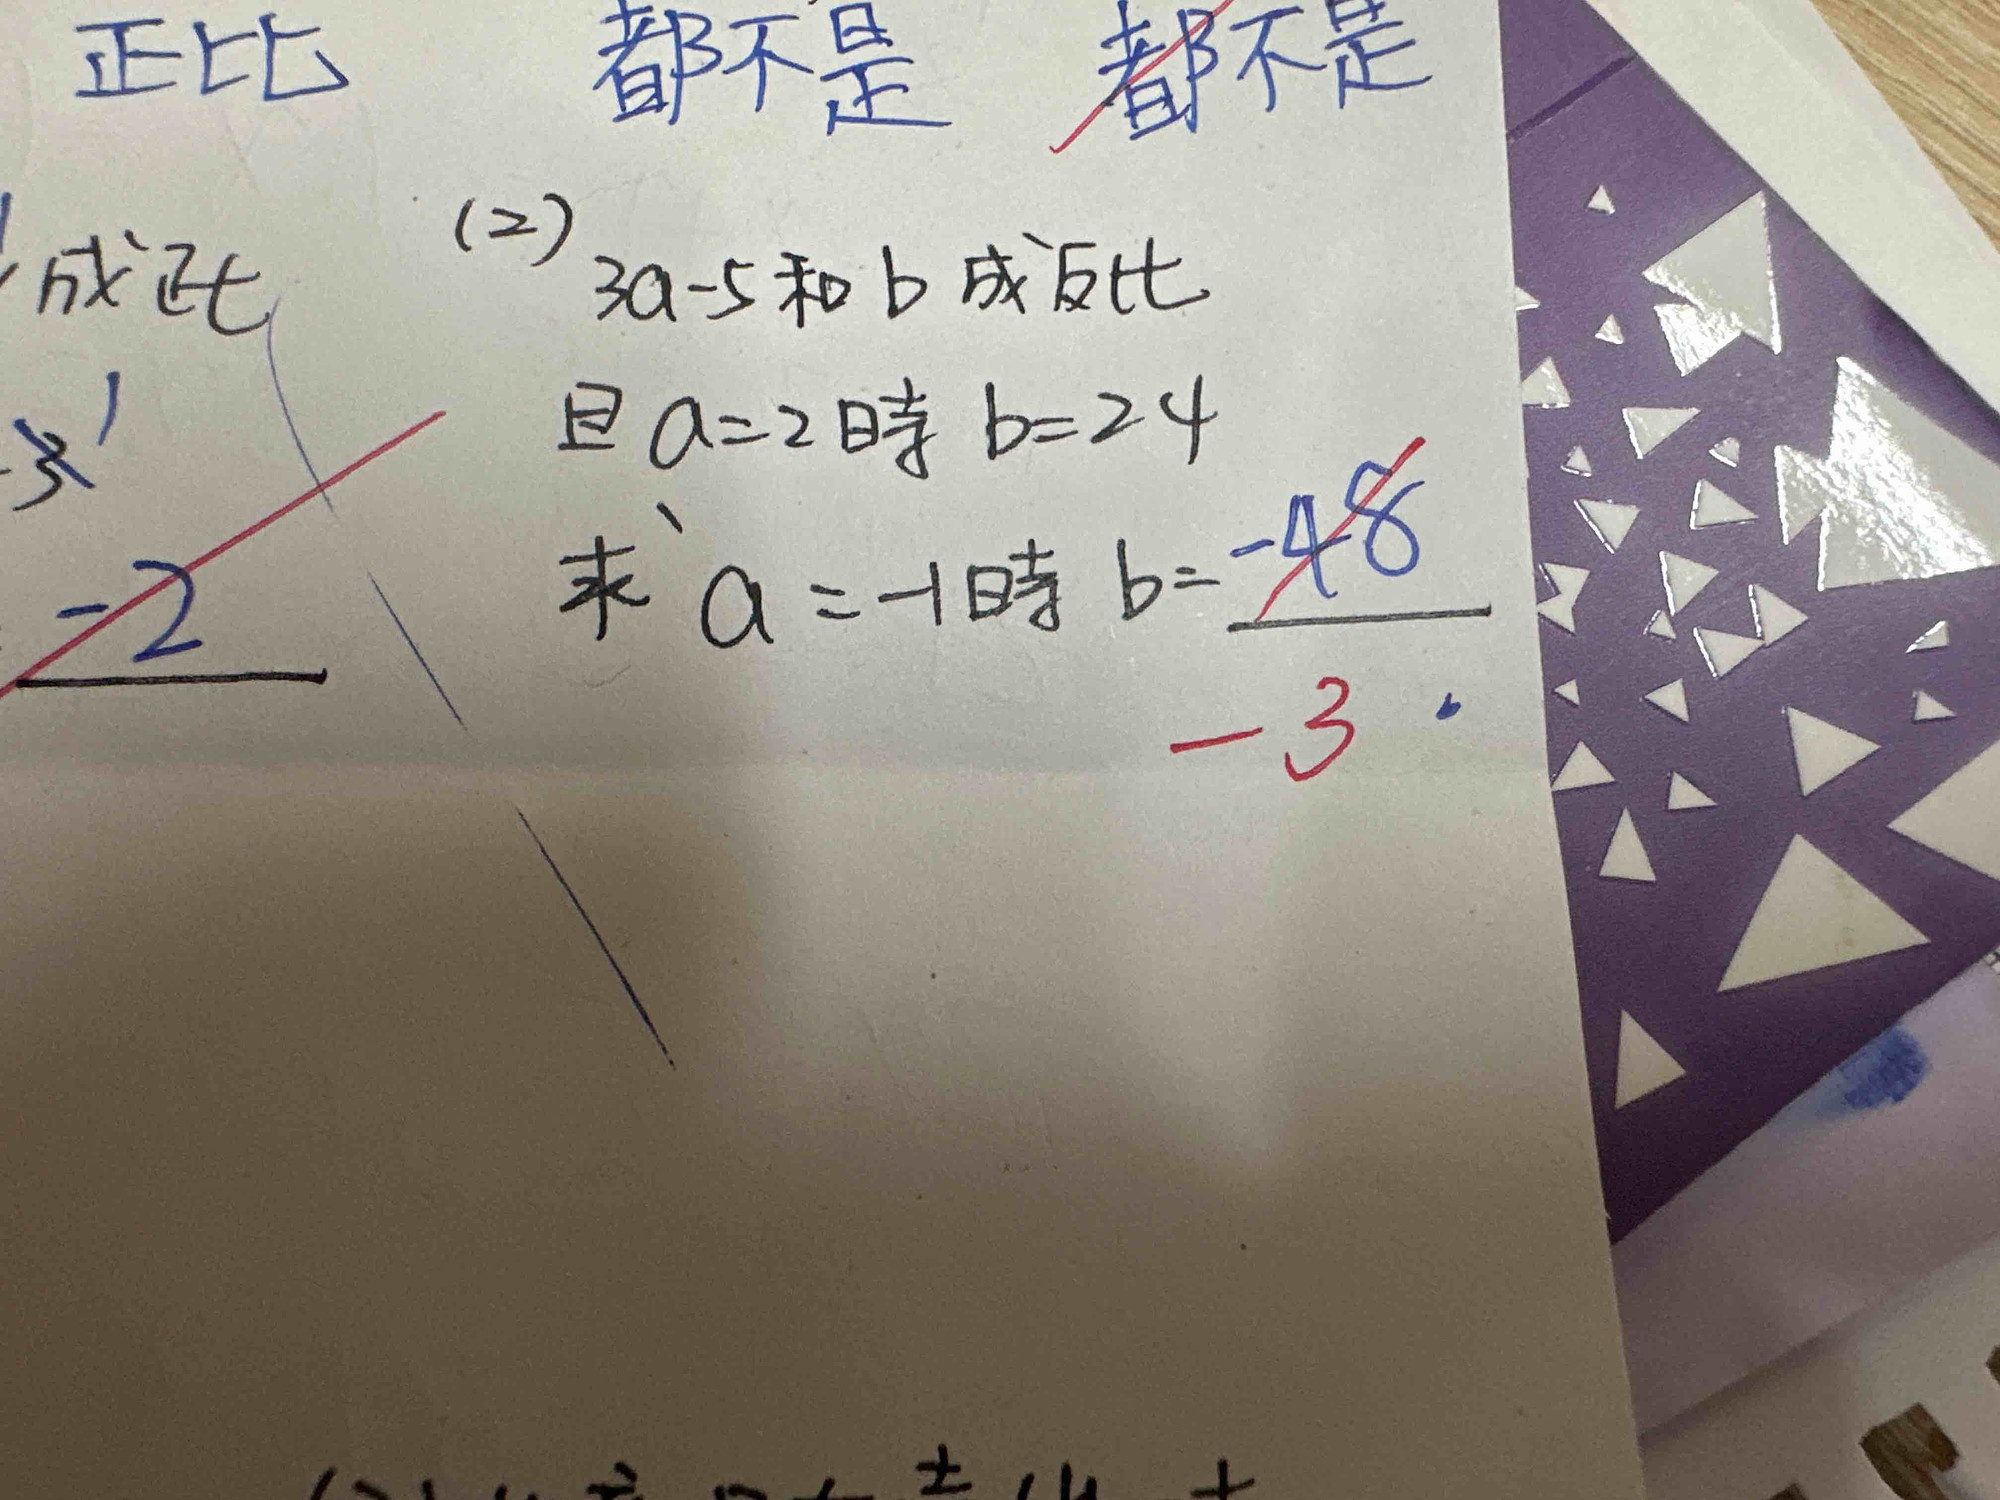 正比 都不是 都不是
成正比
(2) 3a-5和b成反比
且a=2時 b=24
求a=-1時 b=-48
-2
-3